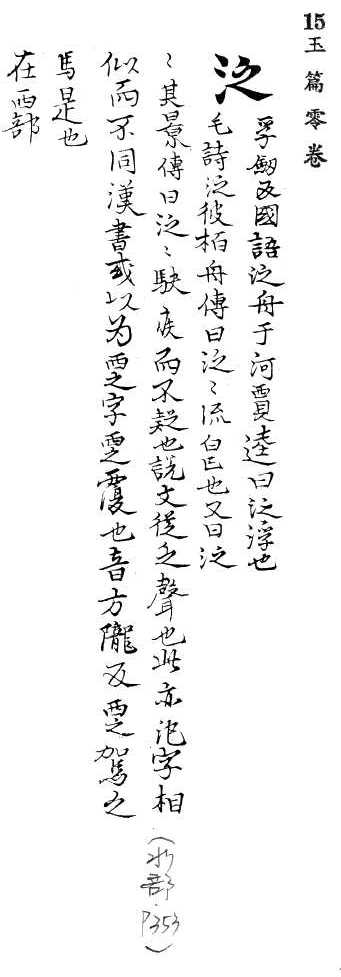 15玉篇零卷
泛 孚劒反國語泛舟于河賈逵曰泛浮也
毛詩泛彼栢舟傳曰泛〻流皃也又曰泛
〻其景傳曰泛〻駃疾而不礙也說文從乏聲也此亦汎字相
似而不同漢書或以为覂字覂覆也音方隴反覂駕之
馬是也
在覀部
(水部P353)